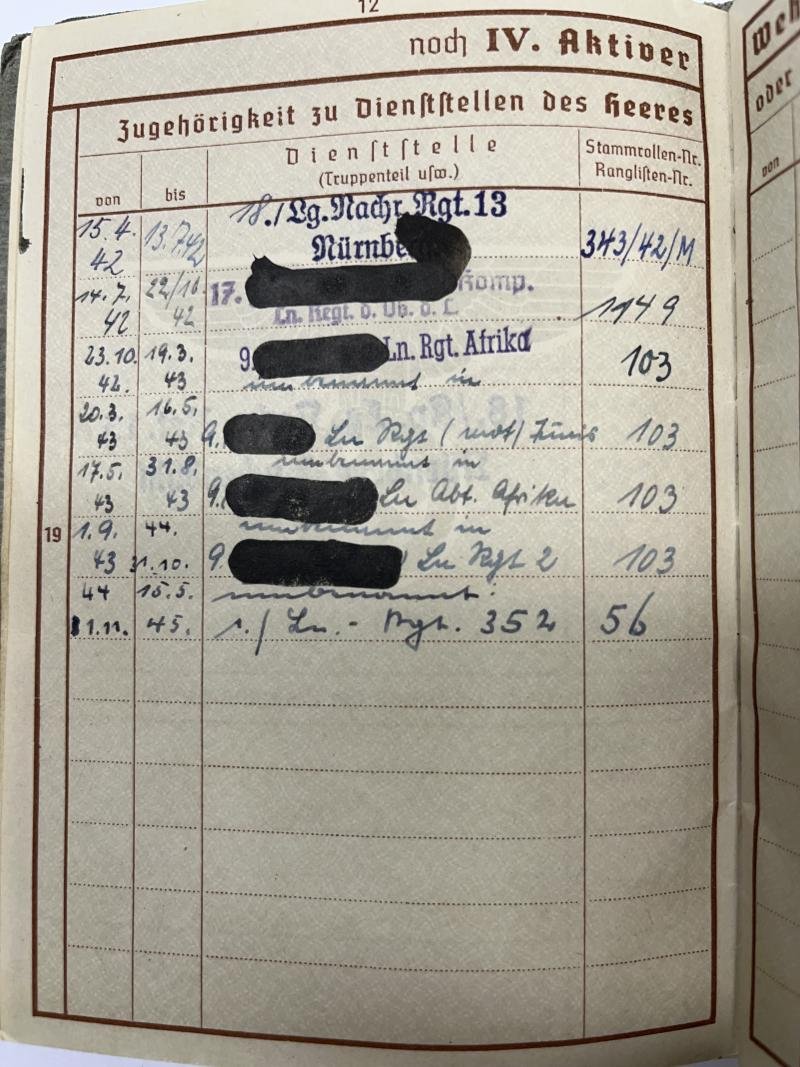 12
noch IV. Aktiver
Zugehörigkeit zu Dienststellen des Heeres
von
bis
Dienststelle
(Truppenteil usw.)
Stammrollen-Nr.
Ranglisten-Nr.
15.4. 42
13.7.42
18./Lg.Nachr.Rgt.13
Nürnberg
343/42/M
14.7. 42
22/10 42
17. Komp.
Ln. Regt. d. Ob. d. L.
1149
23.10. 42.
19.3. 43
9. Ln. Rgt. Afrika
103
umbenannt in
20.3. 43
16.5. 43
9. Ln Rgt (mot) Tunis
103
umbenannt in
17.5. 43
31.8. 43
9. Ln Abt. Afrika
103
umbenannt in
19
1.9. 43
44. 31.10.
9. Ln Rgt 2
103
umbenannt:
44 1.11.
15.5. 45.
1./ Ln.- Rgt. 352
56
Weh
oder
von